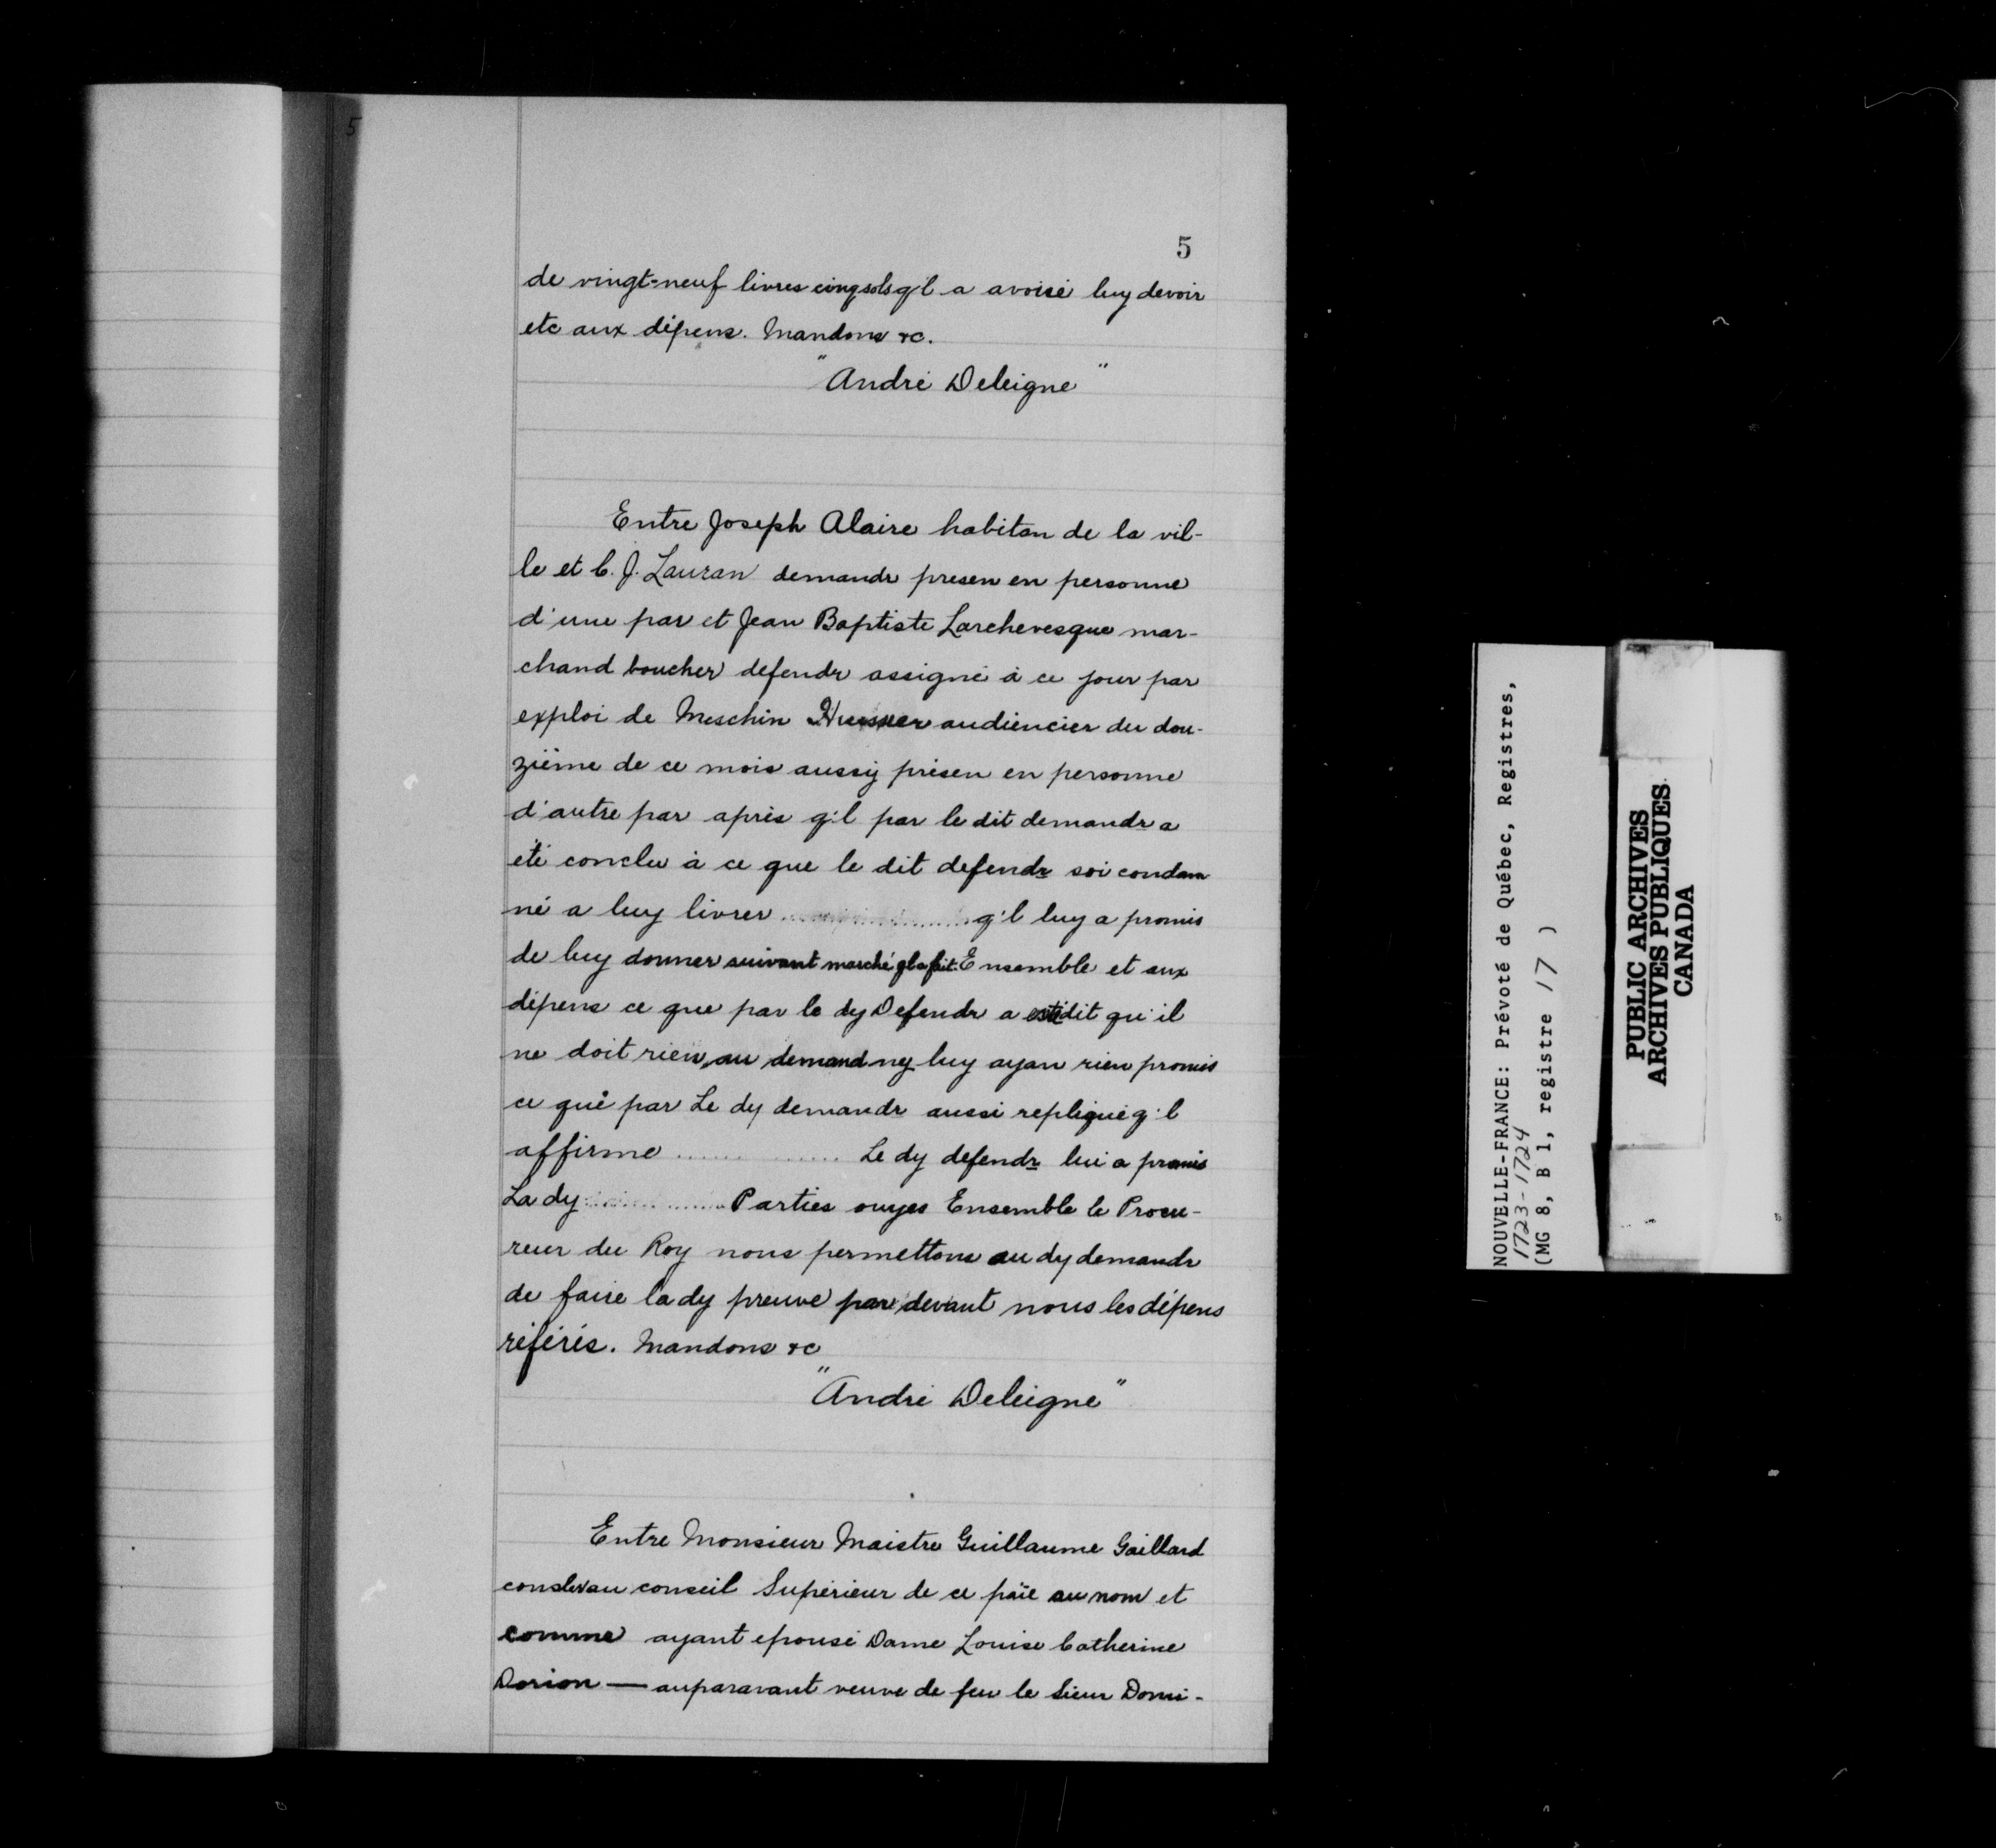 5
5
de vingt-neuf livres cinq sols q'l a avoisé luy devoir
etc aux dépens. Mandons &c.
"André Deleigne"
Entre Joseph Alaire habitan de la vil-
le et C. J. Lauzan demandr presen en personne
d'une par et Jean Baptiste Larchevesque mar-
chand boucher defendr assigné à ce jour par
exploi de Meschin Huissier audiencier du dou-
zième de ce mois aussy présen en personne
d'autre par après q'l par le dit demandr a
été conclu à ce que le dit defendr soi condam
né a luy livrer .................... q'l luy a promis
de luy donner suivant marché q'l a fait. Ensemble et aux
dépens ce que par le dy Defendr a esté dit qu'il
ne doit rien, au demand ny luy ayan rien promis
ce que par Le dy demandr aussi repliqué q'l
affirme .................... Le dy defendr lui a promis
La dy .................... Parties ouyes Ensemble le Procu-
reur du Roy nous permettons au dy demandr
de faire la dy preuve par devant nous les dépens
référés. Mandons &c
"André Deleigne"
Entre Monsieur Maistre Guillaume Gaillard
conser au conseil Supérieur de ce païe au nom et
comme ayant epousé Dame Louise Catherine
Dorion — auparavant veuve de feu le Sieur Domi-
NOUVELLE-FRANCE: Prévoté de Québec, Registres,
1723-1724
(MG 8, B 1, registre 17 )
PUBLIC ARCHIVES
ARCHIVES PUBLIQUES
CANADA